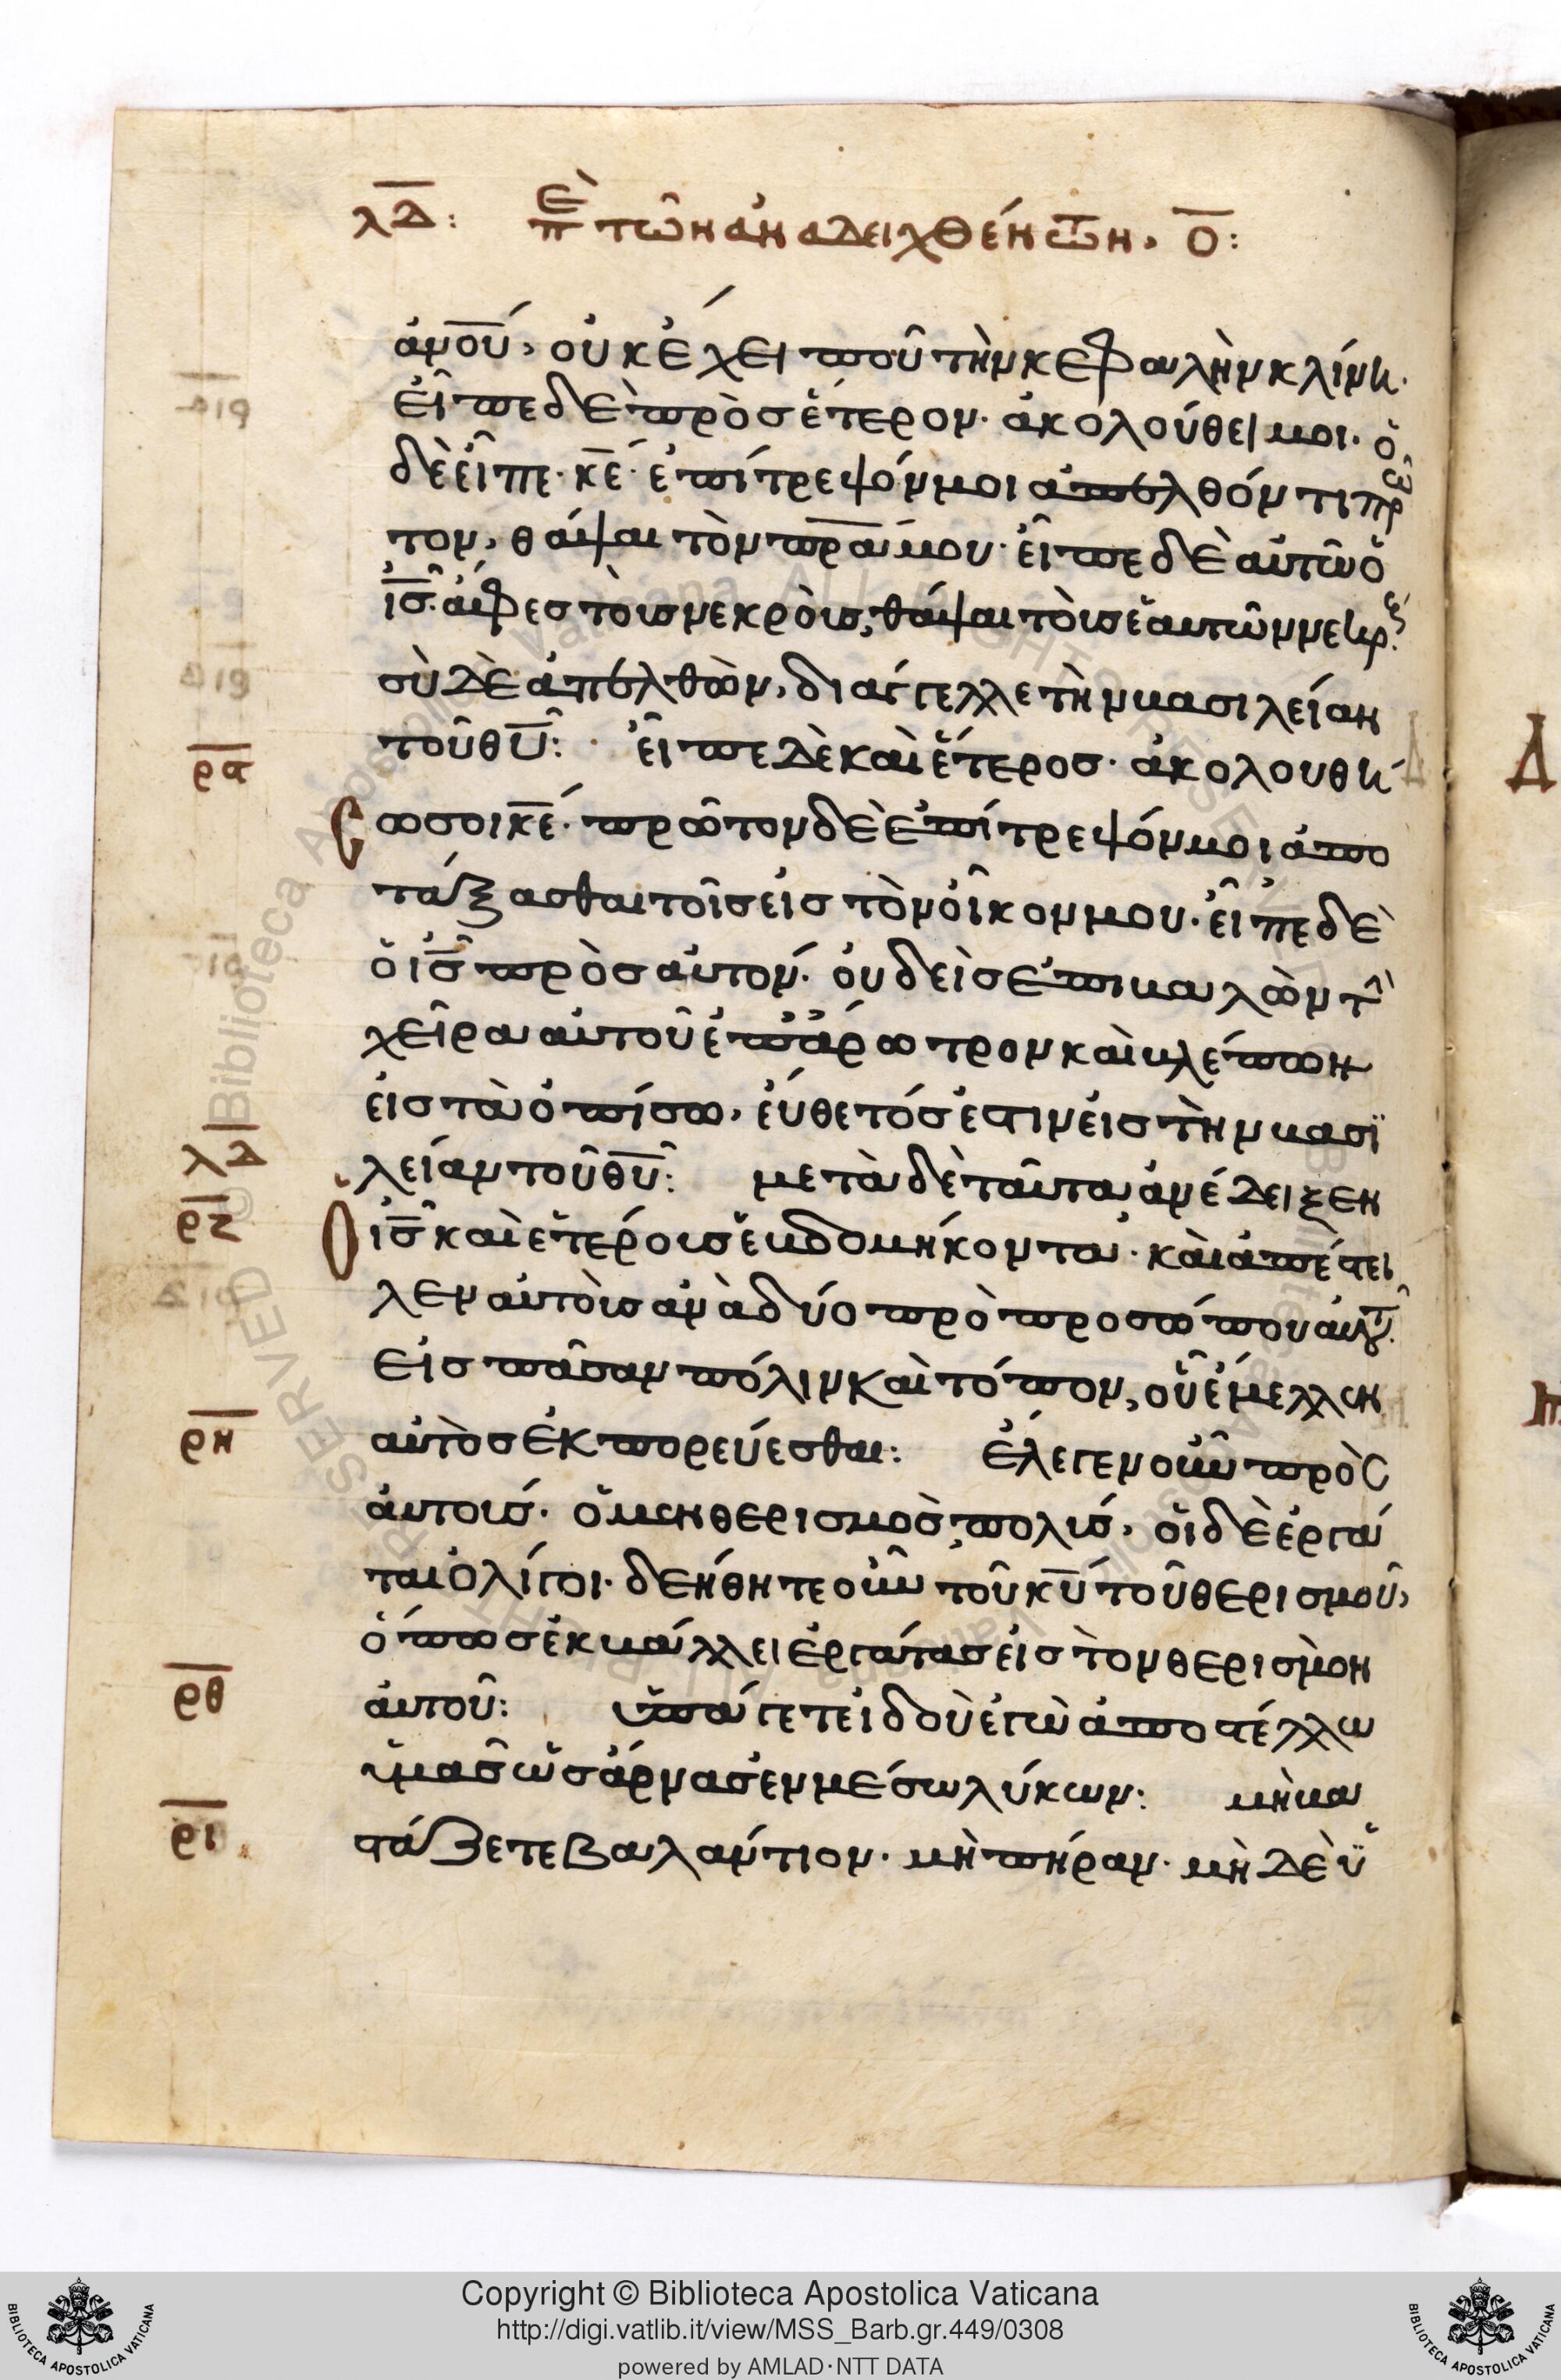 λδ: πε τῶν ἀναδειχθέντων. ο:
ἀνου, οὐκ ἔχει ποῦ τὴν κεφαλὴν κλίνη.
εἶπε δὲ πρὸς ἕτερον· ἀκολούθει μοι. ὁ
δὲ εἶπε· κε· ἐπίτρεψόν μοι ἀπελθόντι πρω
τον, θάψαι τὸν πρα μου· εἶπε δὲ αὐτῶ ὁ
ις. ἄφες τοὺς νεκροὺς, θάψαι τοὺς ἑαυτῶν νεκρ.
σὺ δὲ ἀπελθὼν, διάγγελλε τὴν βασιλείαν
τοῦ θυ:
ρϛ
εἶπε δὲ καὶ ἕτερος· ἀκολουθή
σω σοι κε· πρῶτον δὲ ἐπίτρεψόν μοι ἀπο
τάξασθαι τοῖς εἰς τὸν οἶκον μου· εἶπε δὲ
ὁ ις πρὸς αὐτον· οὐδεὶς ἐπιβαλὼν τὴν
χεῖρα αὐτοῦ ἐπ' ἄροτρον καὶ βλέπων
εἰς τὰ ὀπίσω, εὔθετός ἐστιν εἰς τὴν βασι
λείαν τοῦ θυ:
λδ
ρζ
μετὰ δὲ ταῦτα ἀνέδειξεν
Ὁ ις καὶ ἑτέρους ἑβδομήκοντα· καὶ ἀπέστει
λεν αὐτοὺς ἀνὰ δύο πρὸ προσώπου αὐτοῦ.
εἰς πᾶσαν πόλιν καὶ τόπον, οὗ ἔμελλεν
αὐτὸς ἐκπορεύεσθαι:
ρη
ἔλεγεν οὖν πρὸς
αὐτους· ὁ μὲν θερισμὸς πολυς, οἱ δὲ ἐργά
ται ὀλίγοι· δεήθητε οὖν τοῦ κυ τοῦ θερισμοῦ,
ὅπως ἐκβάλλει ἐργάτας εἰς τὸν θερισμὸν
αὐτοῦ:
ρθ
ὑπάγετε ἰδοὺ ἐγὼ ἀποστέλλω
ὑμᾶς ὡς ἄρνας ἐν μέσω λύκων:
ρι
μὴ βα
στάζετε βαλάντιον· μὴ πήραν· μὴ δὲ ὑ
Copyright © Biblioteca Apostolica Vaticana
http://digi.vatlib.it/view/MSS_Barb.gr.449/0308
powered by AMLAD·NTT DATA